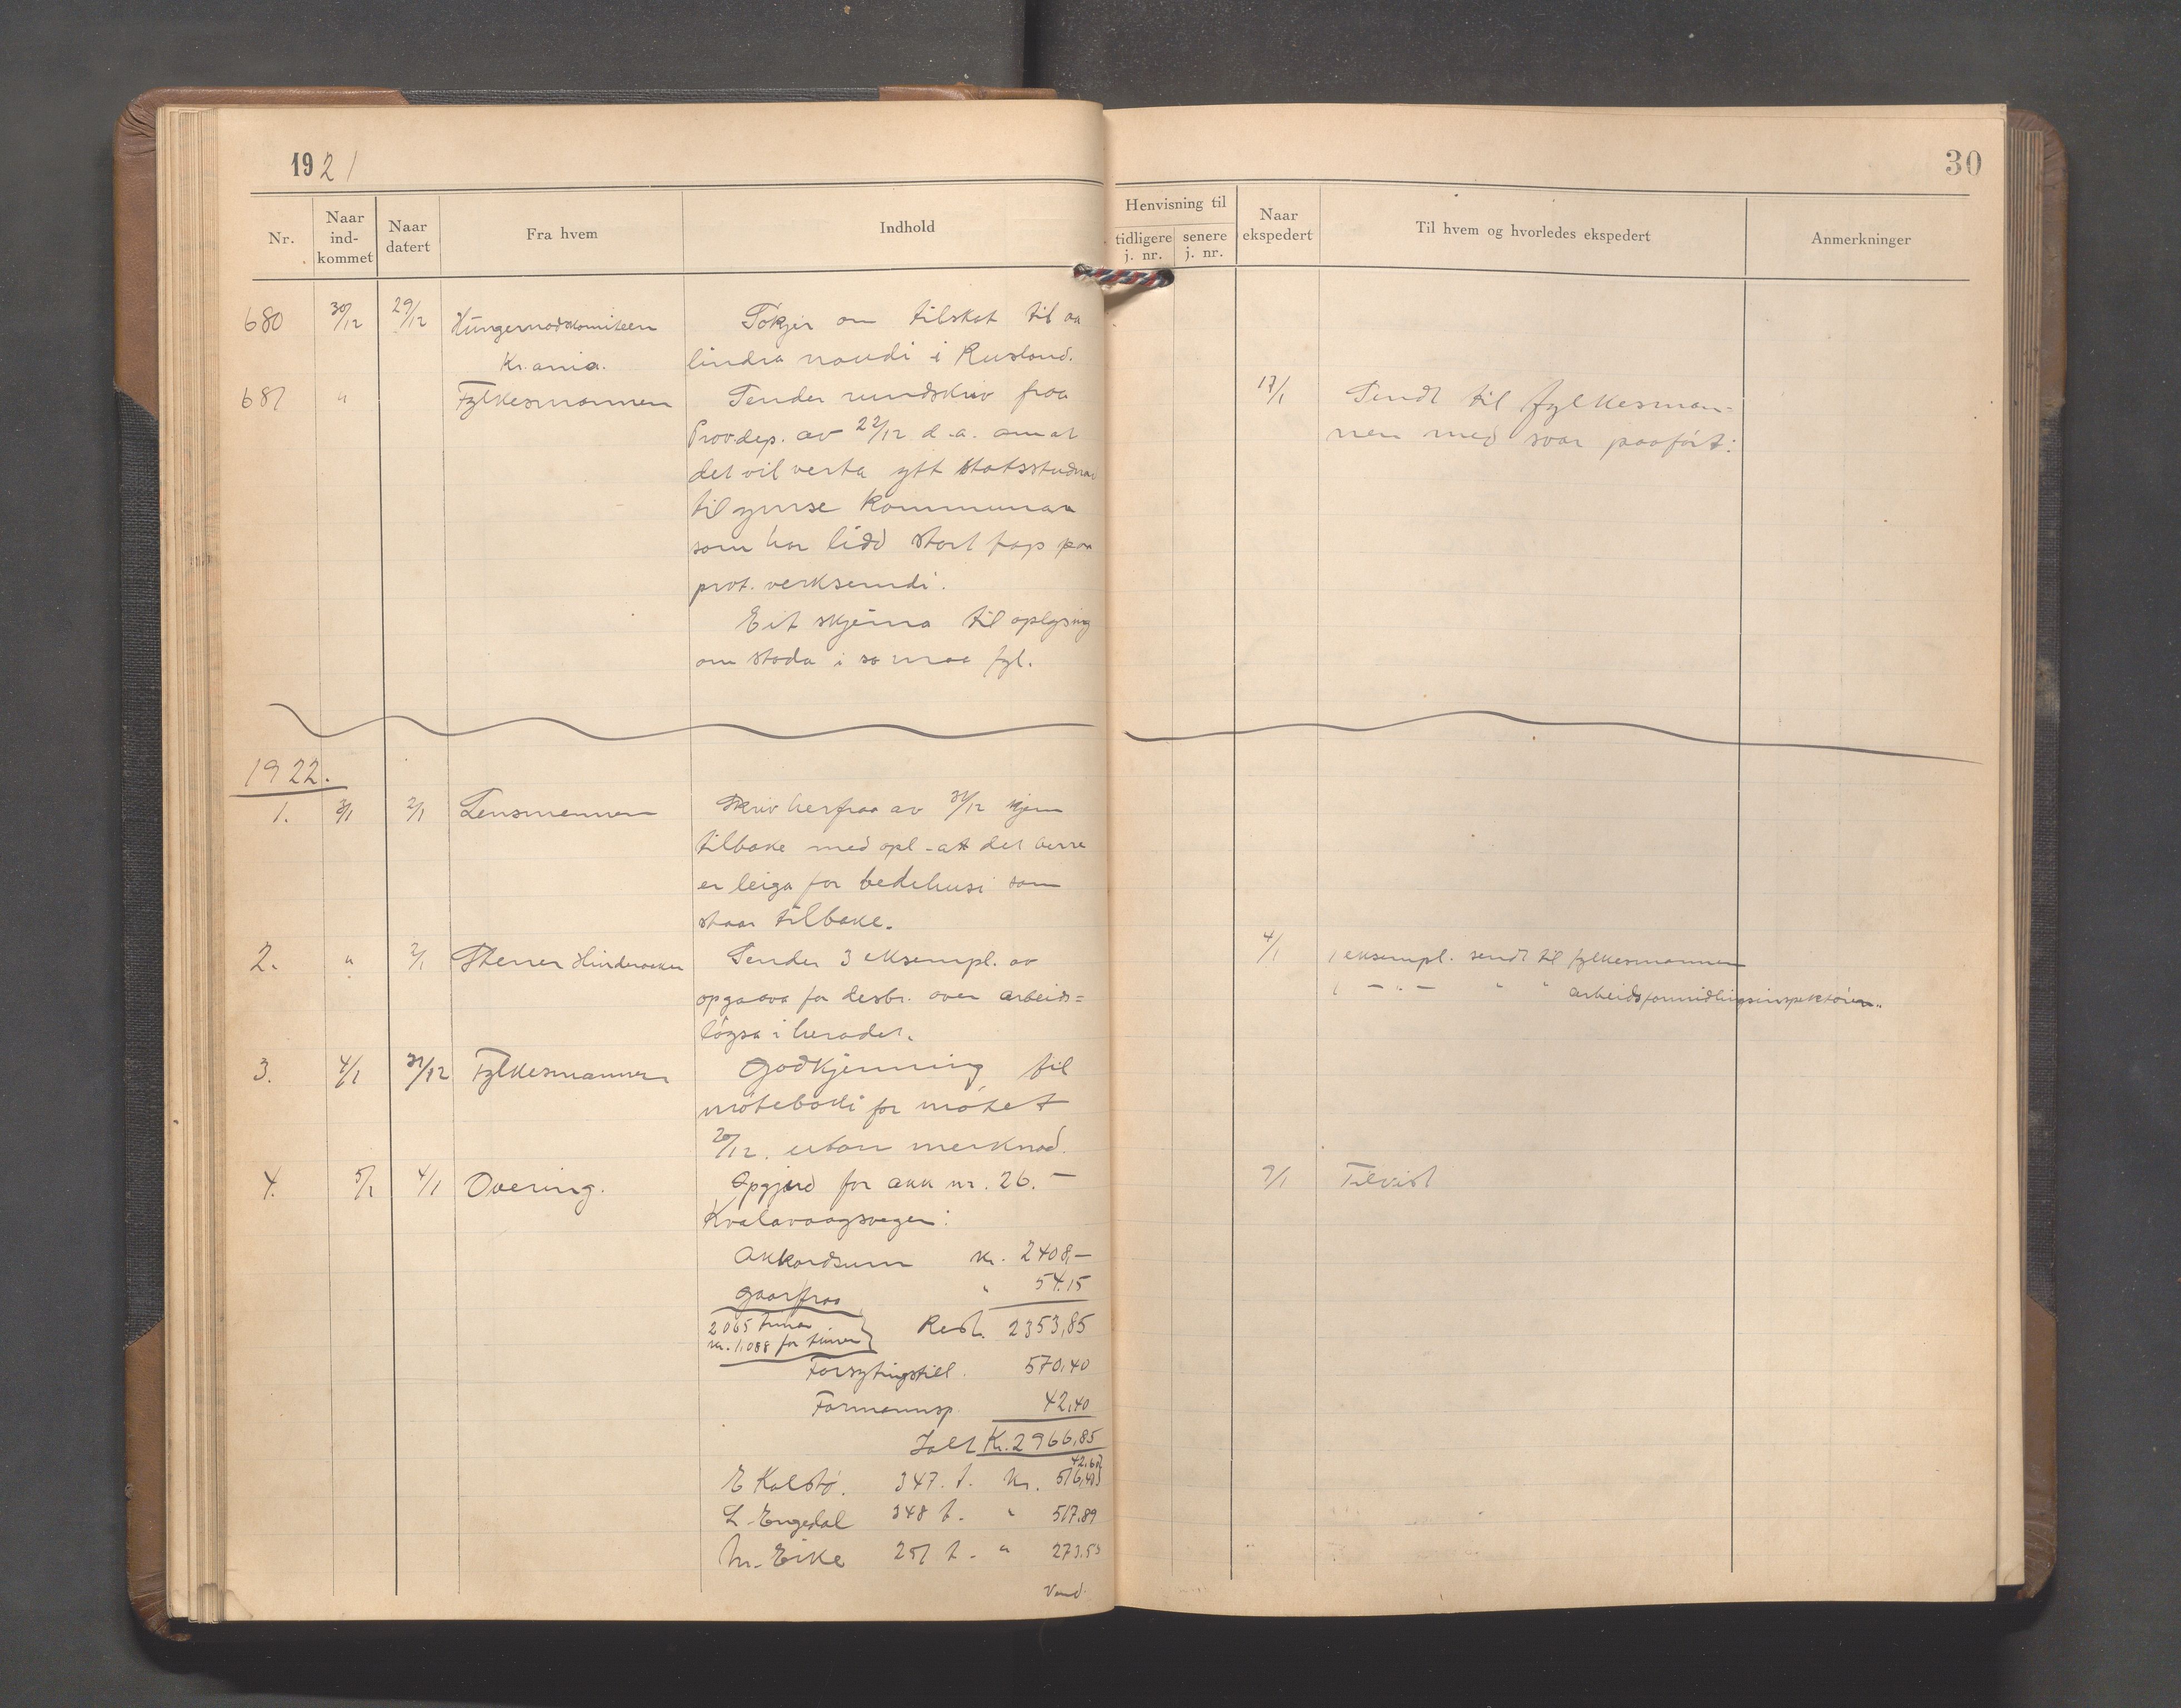 1921
30
Nr.
Naar ind-kommet
Naar datert
Fra hvem
Indhold
Henvisning til
tidligere j. nr.
senere j. nr.
Naar ekspedert
Til hvem og hvorledes ekspedert
Anmerkninger
680 30/12 29/12 Hungernodskomiteen Sökjer om tilskot til aa
Kr.ania. lindra naudi i Rusland.
681 " Fylkesmannen Sender rundskriv fraa 17/1 Sendt til fylkesman-
Prov.dep. av 22/12 d.a. om at nen med svar paafört:
det vil verta ytt statsstudnad
til ymse kommunar
som har lidd stort tap paa
prov. verksemdi.
Eit skjema til oplysing
om stoda i so maa fyl.
1922.
1. 3/1 2/1 Lensmannen Skriv herfraa av 31/12 kjem
tilbake med opl. att det berre
er leiga for bedehusi som
staar tilbake.
2. " 2/1 Hinderaker Sender 3 eksempl. av 4/1 1 eksempl. sendt til fylkesmannen
opgaava for desbr. over arbeids= 1 - " - " " arbeidsformidlingsinspektören.
lögsa i heradet.
3. 4/1 31/12 Fylkesmannen Godkjenning til
möteboki for mötet
20/12. utan merknad.
4. 5/1 4/1 Overing. Opgjerd for akk nr. 26. - 7/1 Tilvist
Kvalavaagsvegen:
Akkordsum kr. 2408,-
gaar fraa " 54.15
2065 timar
kr. 1,088 for timen } Rest. 2353,85
Forsytingstill. 570,40
Formannsp. 42,40
Ialt Kr. 2966,85
42.60
E Kalstö. 347. t. Kr. 516,40
L. Engedal 348 t. " 517.89
M. Eike 251 t. " 273.53
Vend.